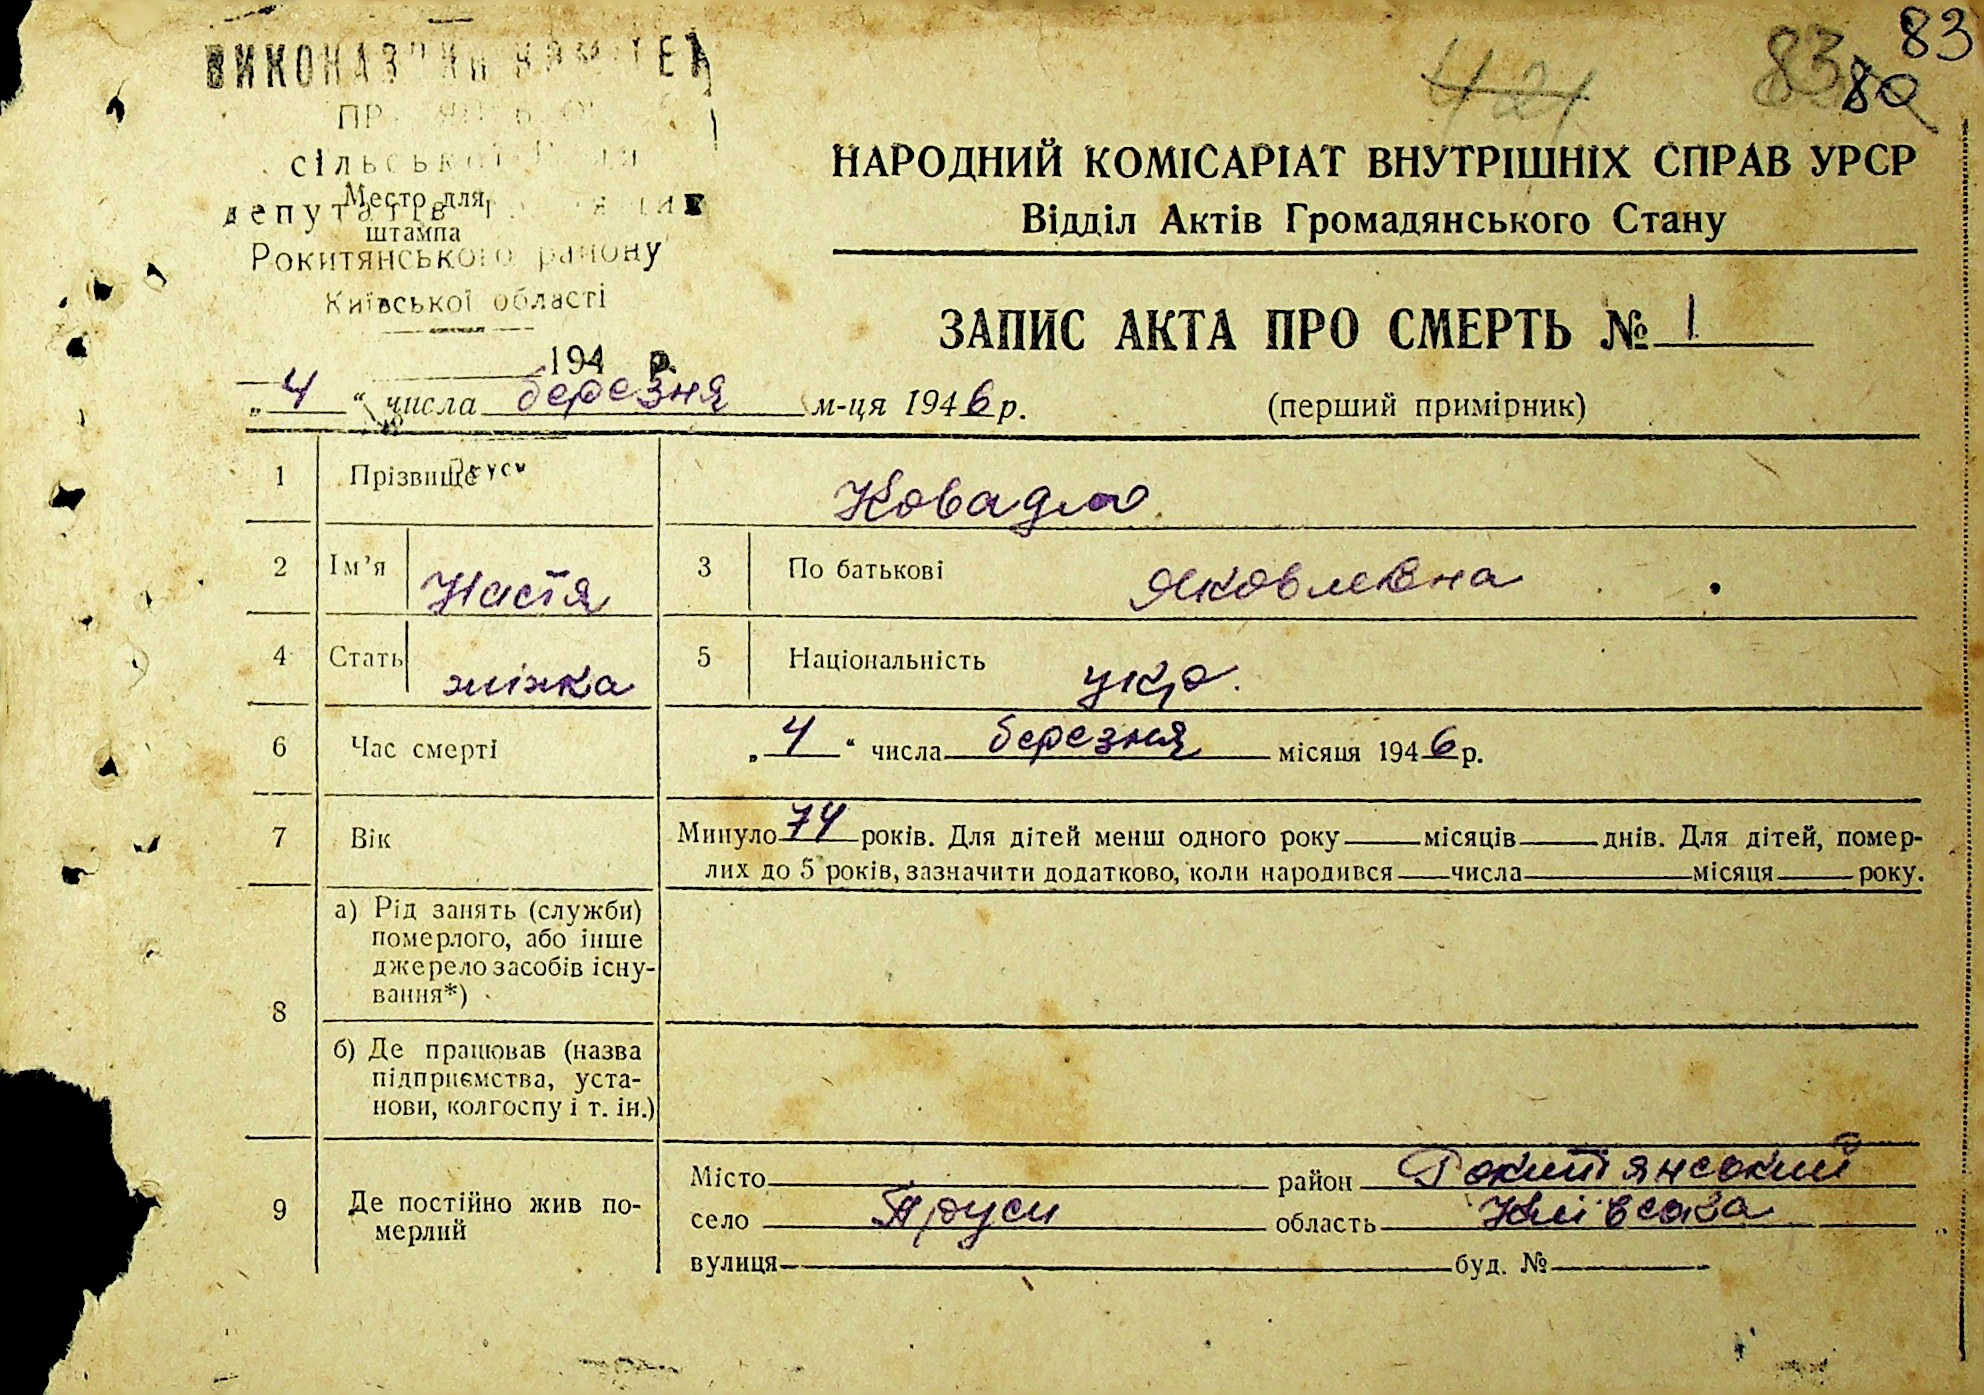 83
83
80
421
ВИКОНАВЧИЙ КОМІТЕТ
сільської Ради
депутатів
Рокитянського району
Київської області
Место для
штампа
194 р.
НАРОДНИЙ КОМІСАРІАТ ВНУТРІШНІХ СПРАВ УРСР
Відділ Актів Громадянського Стану
ЗАПИС АКТА ПРО СМЕРТЬ № 1
„4“ числа березня м-ця 1946 р.
(перший примірник)
1 Прізвище Ковадло
2 Ім’я Настя 3 По батькові Яковлевна
4 Стать жінка 5 Національність укр.
6 Час смерті „4“ числа березня місяця 1946 р.
7 Вік Минуло 74 років. Для дітей менш одного року місяців днів. Для дітей, помер-
лих до 5 років, зазначити додатково, коли народився числа місяця року.
8 а) Рід занять (служби)
померлого, або інше
джерело засобів існу-
вання*)
б) Де працював (назва
підприємства, уста-
нови, колгоспу і т. ін.)
9 Де постійно жив по-
мерлий
Місто район Рокитянський
село Пруси область Київська
вулиця буд. №